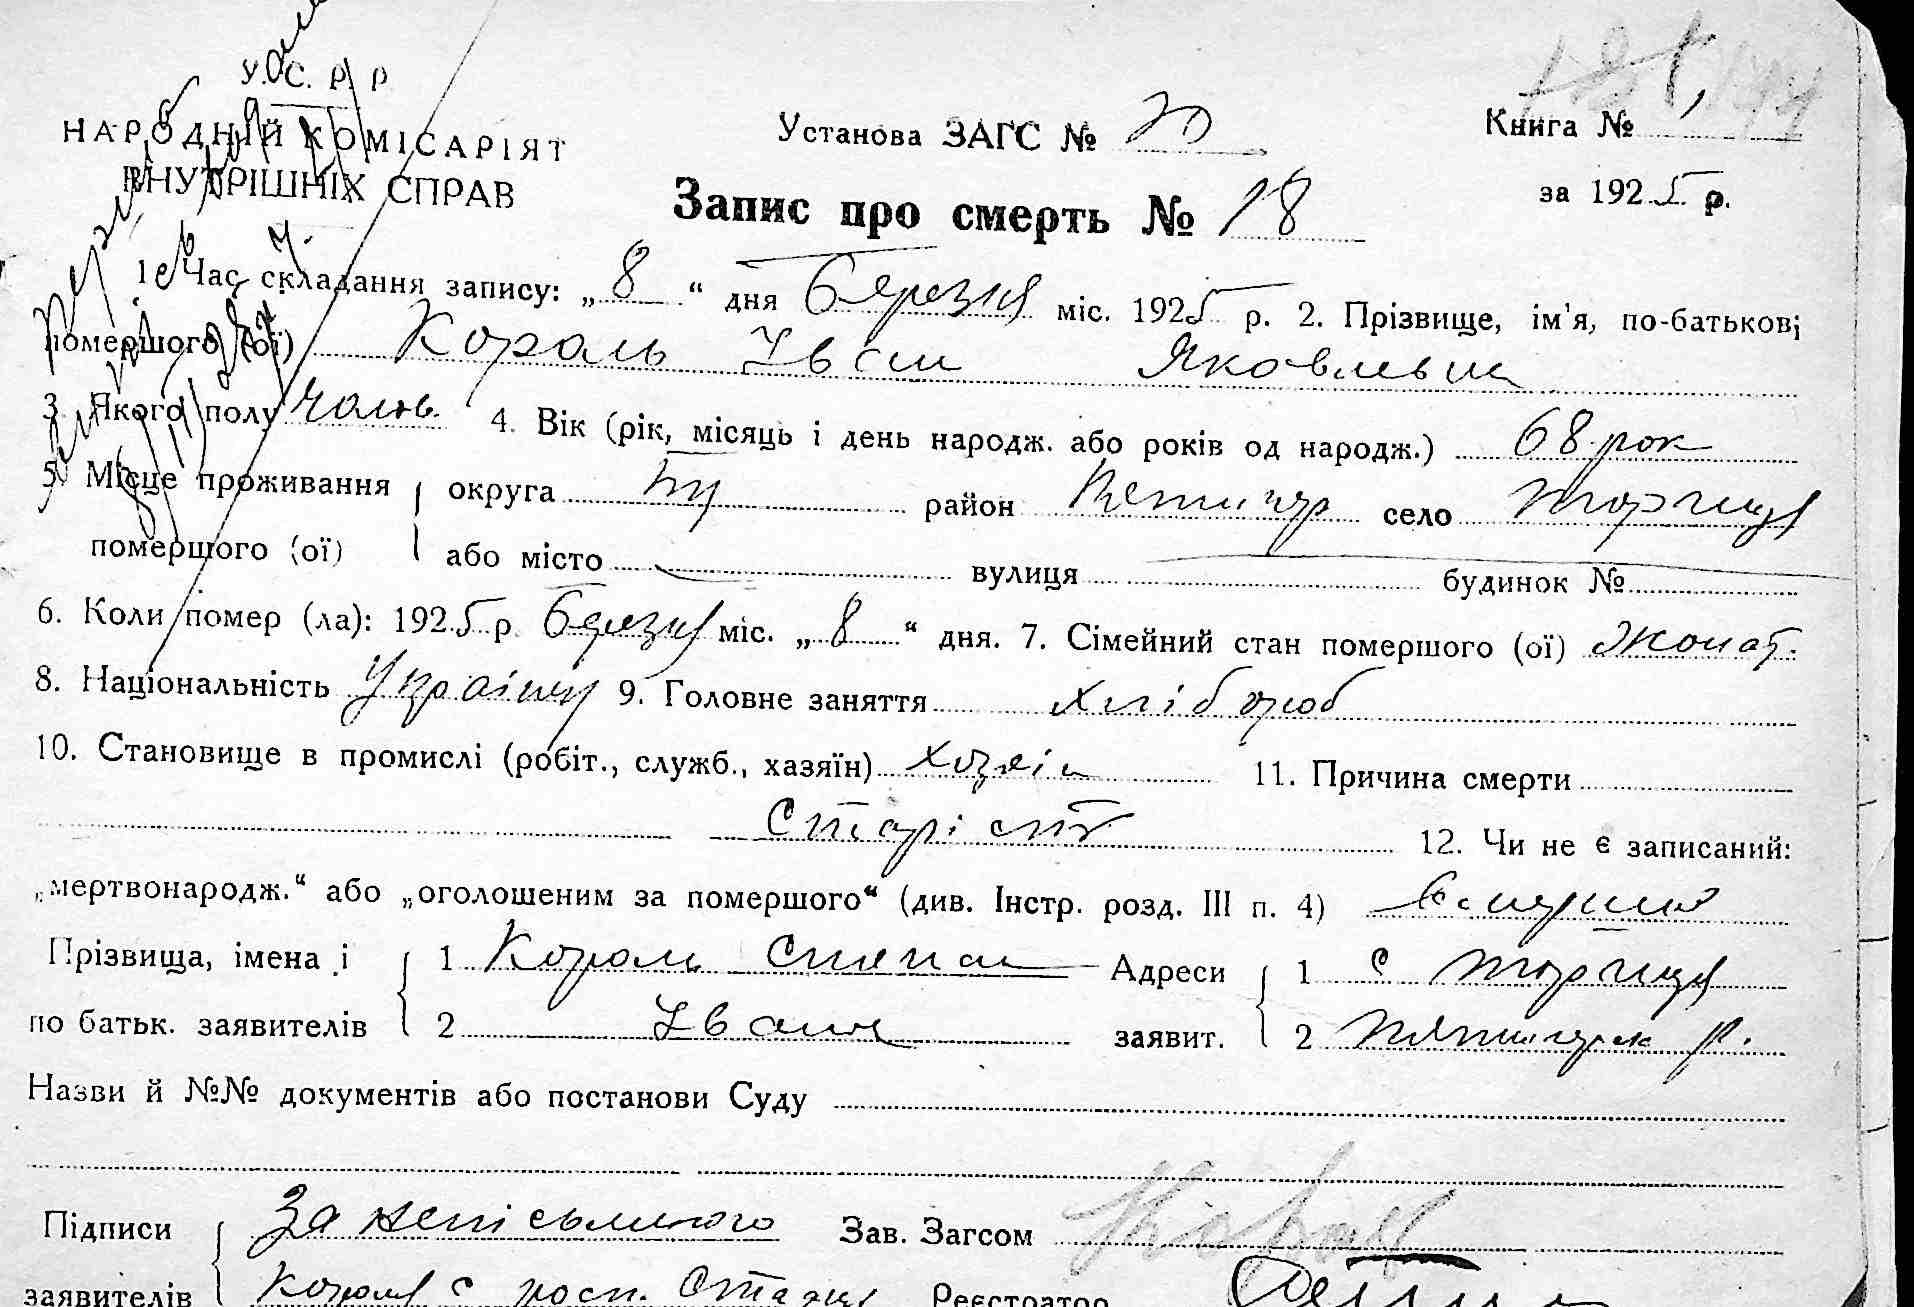 У.С.Р.Р
НАРОДНІЙ КОМІСАРІЯТ
ВНУТРІШНІХ СПРАВ
Установа ЗАГС №
Книга № 1
за 1925 р.
Запис про смерть № 18
1. Час складання запису: „8“ дня Березня міс. 1925 р. 2. Прізвище, ім'я, по-батькові
помершого (ої) Король Іван Яковлевич
3. Якого полу чолов. 4. Вік (рік, місяць і день народж. або років од народж.) 68 рок
5. Місце проживання округа район село Торчиця
помершого (ої) або місто вулиця будинок №
6. Коли помер (ла): 1925 р. Березня міс. „8“ дня. 7. Сімейний стан помершого (ої) жонат.
8. Національність Україн 9. Головне заняття хлібороб
10. Становище в промислі (робіт., служб., хазяїн) хозяін 11. Причина смерти
Старість 12. Чи не є записаний:
„мертвонародж.“ або „оголошеним за помершого“ (див. Інстр. розд. III п. 4)
Прізвища, імена і 1 Король Степан Адреси 1 с Торчиця
по батьк. заявителів 2 Іванов заявит. 2 Пятигорск р.
Назви й №№ документів або постанови Суду
Підписи За неписьменного Зав. Загсом
заявителів Короля С росп. Реєстратор